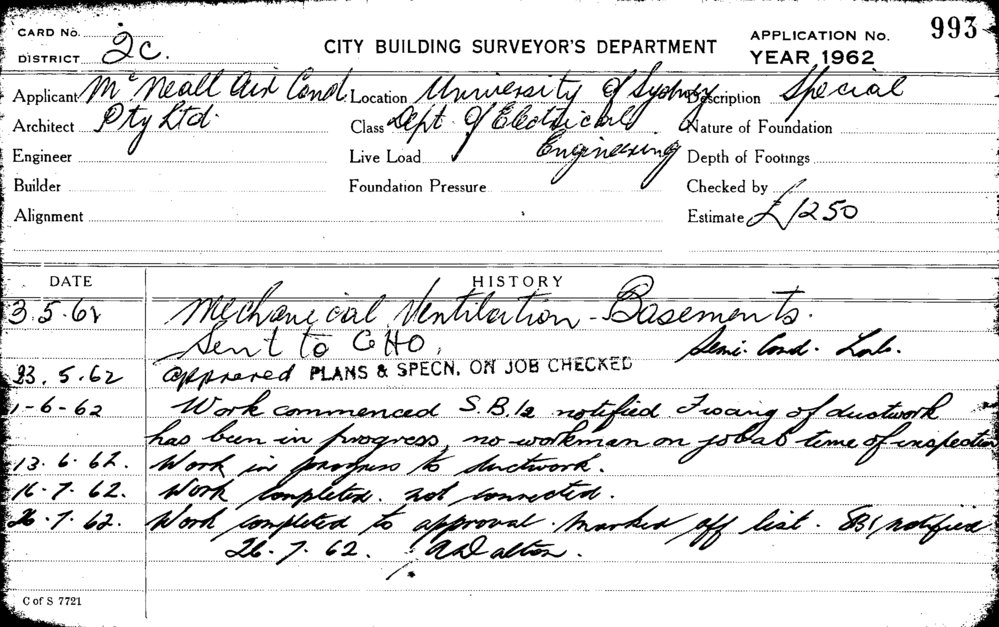 CARD No.
DISTRICT 2c.
CITY BUILDING SURVEYOR'S DEPARTMENT
APPLICATION No. 993
YEAR 1962
Applicant Mc Neall Air Cond. Location University of Sydney Description Special
Architect Pty Ltd. Class Dept of Electrical Nature of Foundation
Engineer Live Load Engineering Depth of Footings
Builder Foundation Pressure Checked by
Alignment Estimate £1250
DATE HISTORY
3.5.62 Mechanical Ventilation - Basements.
Sent to CHO, Semi. Cond. Lab.
23.5.62 approved PLANS & SPECN. ON JOB CHECKED
1-6-62 Work commenced S.B. notified Fixing of ductwork
has been in progress, no workman on job at time of inspection
13.6.62. Work in progress to ductwork.
16.7.62. Work completed. not connected.
26.7.62. Work completed to approval. Marked off list. SBI notified
26.7.62. ADalton.
C of S 7721